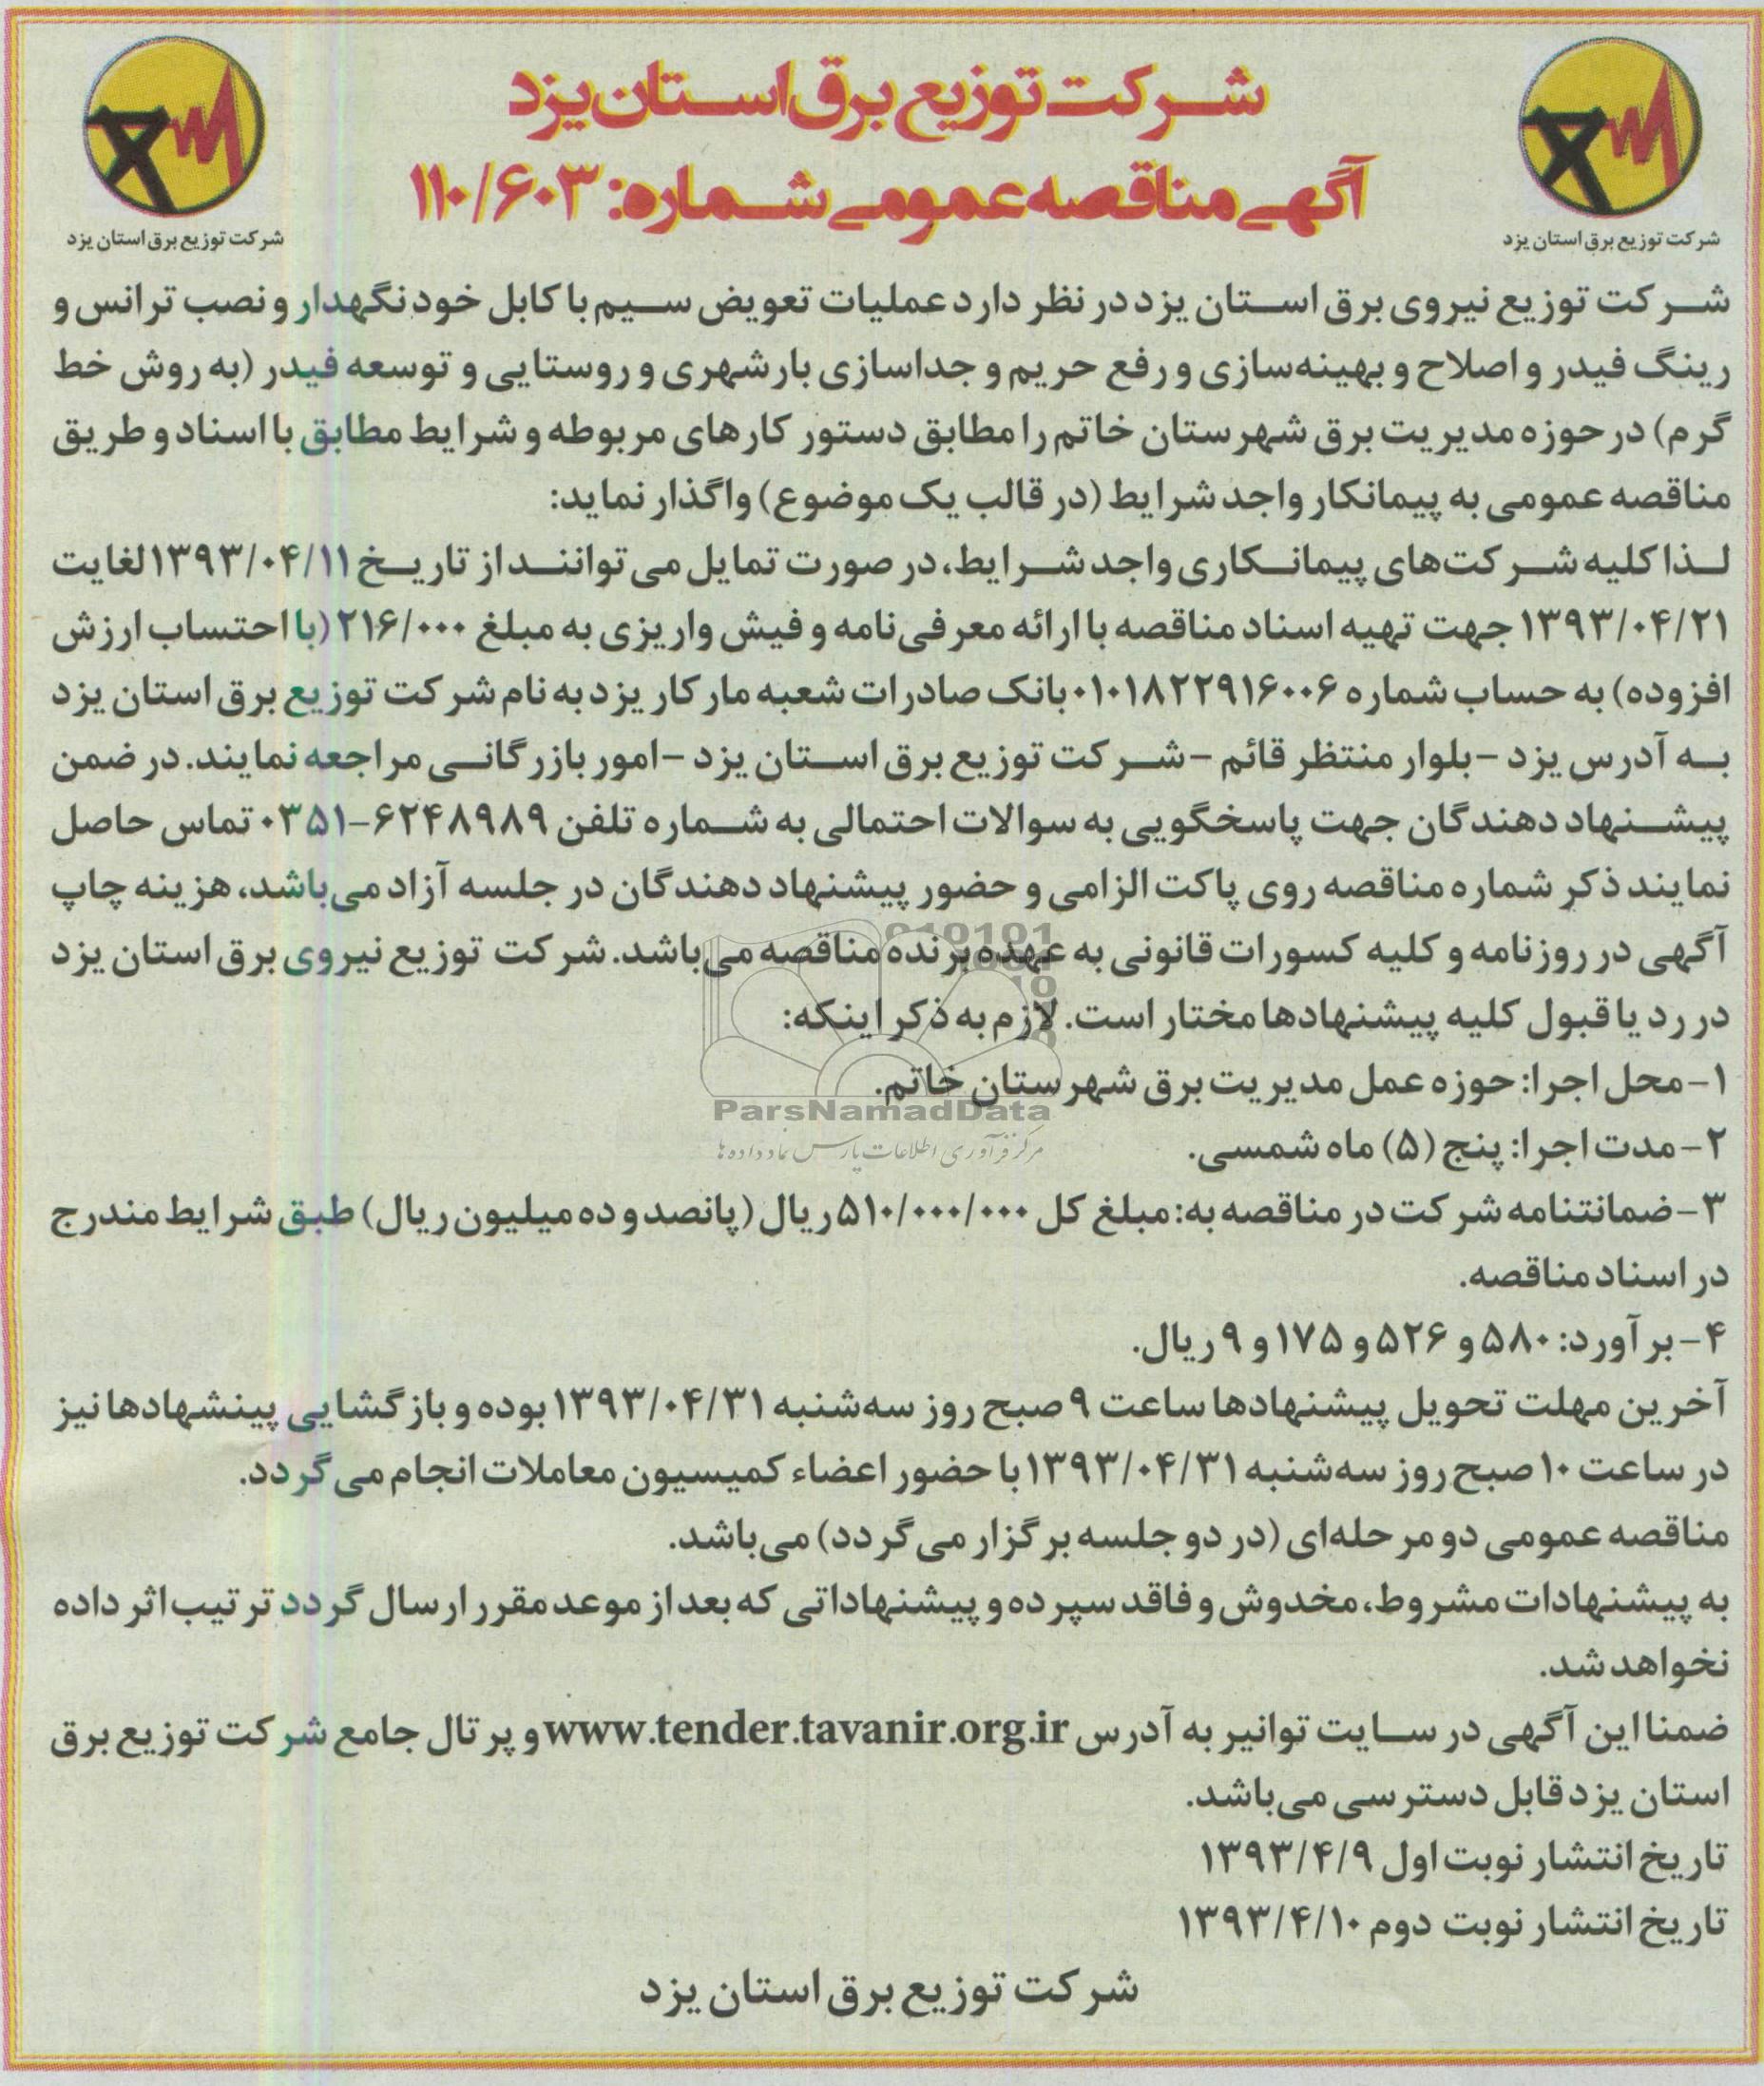 شرکت توزیع برق استان یزد
آگهی مناقصه عمومی شماره: ۱۱۰/۶۰۳
شرکت توزیع برق استان یزد
شرکت توزیع برق استان یزد
شرکت توزیع نیروی برق استان یزد در نظر دارد عملیات تعویض سیم با کابل خودنگهدار و نصب ترانس و
رینگ فیدر و اصلاح و بهینه‌سازی و رفع حریم و جداسازی بار شهری و روستایی و توسعه فیدر (به روش خط
گرم) در حوزه مدیریت برق شهرستان خاتم را مطابق دستور کارهای مربوطه و شرایط مطابق با اسناد و طریق
مناقصه عمومی به پیمانکار واجد شرایط (در قالب یک موضوع) واگذار نماید:
لذا کلیه شرکت‌های پیمانکاری واجد شرایط، در صورت تمایل می توانند از تاریخ ۱۳۹۳/۰۴/۱۱ لغایت
۱۳۹۳/۰۴/۲۱ جهت تهیه اسناد مناقصه با ارائه معرفی‌نامه و فیش واریزی به مبلغ ۲۱۶/۰۰۰ (با احتساب ارزش
افزوده) به حساب شماره ۰۱۰۱۸۲۲۹۱۶۰۰۶ بانک صادرات شعبه مارکار یزد به نام شرکت توزیع برق استان یزد
به آدرس یزد -بلوار منتظر قائم -شرکت توزیع برق استان یزد -امور بازرگانی مراجعه نمایند. در ضمن
پیشنهاد دهندگان جهت پاسخگویی به سوالات احتمالی به شماره تلفن ۶۲۴۸۹۸۹-۰۳۵۱ تماس حاصل
نمایند ذکر شماره مناقصه روی پاکت الزامی و حضور پیشنهاد دهندگان در جلسه آزاد می‌باشد، هزینه چاپ
آگهی در روزنامه و کلیه کسورات قانونی به عهده برنده مناقصه می‌باشد. شرکت توزیع نیروی برق استان یزد
در رد یا قبول کلیه پیشنهادها مختار است. لازم به ذکر اینکه:
۱-محل اجرا: حوزه عمل مدیریت برق شهرستان خاتم.
ParsNamadData
مرکز فرآوری اطلاعات پارس نماد داده ها
۲-مدت اجرا: پنج (۵) ماه شمسی.
۳-ضمانتنامه شرکت در مناقصه به: مبلغ کل ۵۱۰/۰۰۰/۰۰۰ ریال (پانصد و ده میلیون ریال) طبق شرایط مندرج
در اسناد مناقصه.
۴-برآورد: ۵۸۰ و ۵۲۶ و ۱۷۵ و ۹ ریال.
آخرین مهلت تحویل پیشنهادها ساعت ۹ صبح روز سه‌شنبه ۱۳۹۳/۰۴/۳۱ بوده و بازگشایی پینشهادها نیز
در ساعت ۱۰ صبح روز سه‌شنبه ۱۳۹۳/۰۴/۳۱ با حضور اعضاء کمیسیون معاملات انجام می گردد.
مناقصه عمومی دو مرحله‌ای (در دو جلسه برگزار می گردد) می‌باشد.
به پیشنهادات مشروط، مخدوش و فاقد سپرده و پیشنهاداتی که بعد از موعد مقرر ارسال گردد ترتیب اثر داده
نخواهد شد.
ضمنا این آگهی در سایت توانیر به آدرس www.tender.tavanir.org.ir و پرتال جامع شرکت توزیع برق
استان یزد قابل دسترسی می‌باشد.
تاریخ انتشار نوبت اول ۱۳۹۳/۴/۹
تاریخ انتشار نوبت دوم ۱۳۹۳/۴/۱۰
شرکت توزیع برق استان یزد